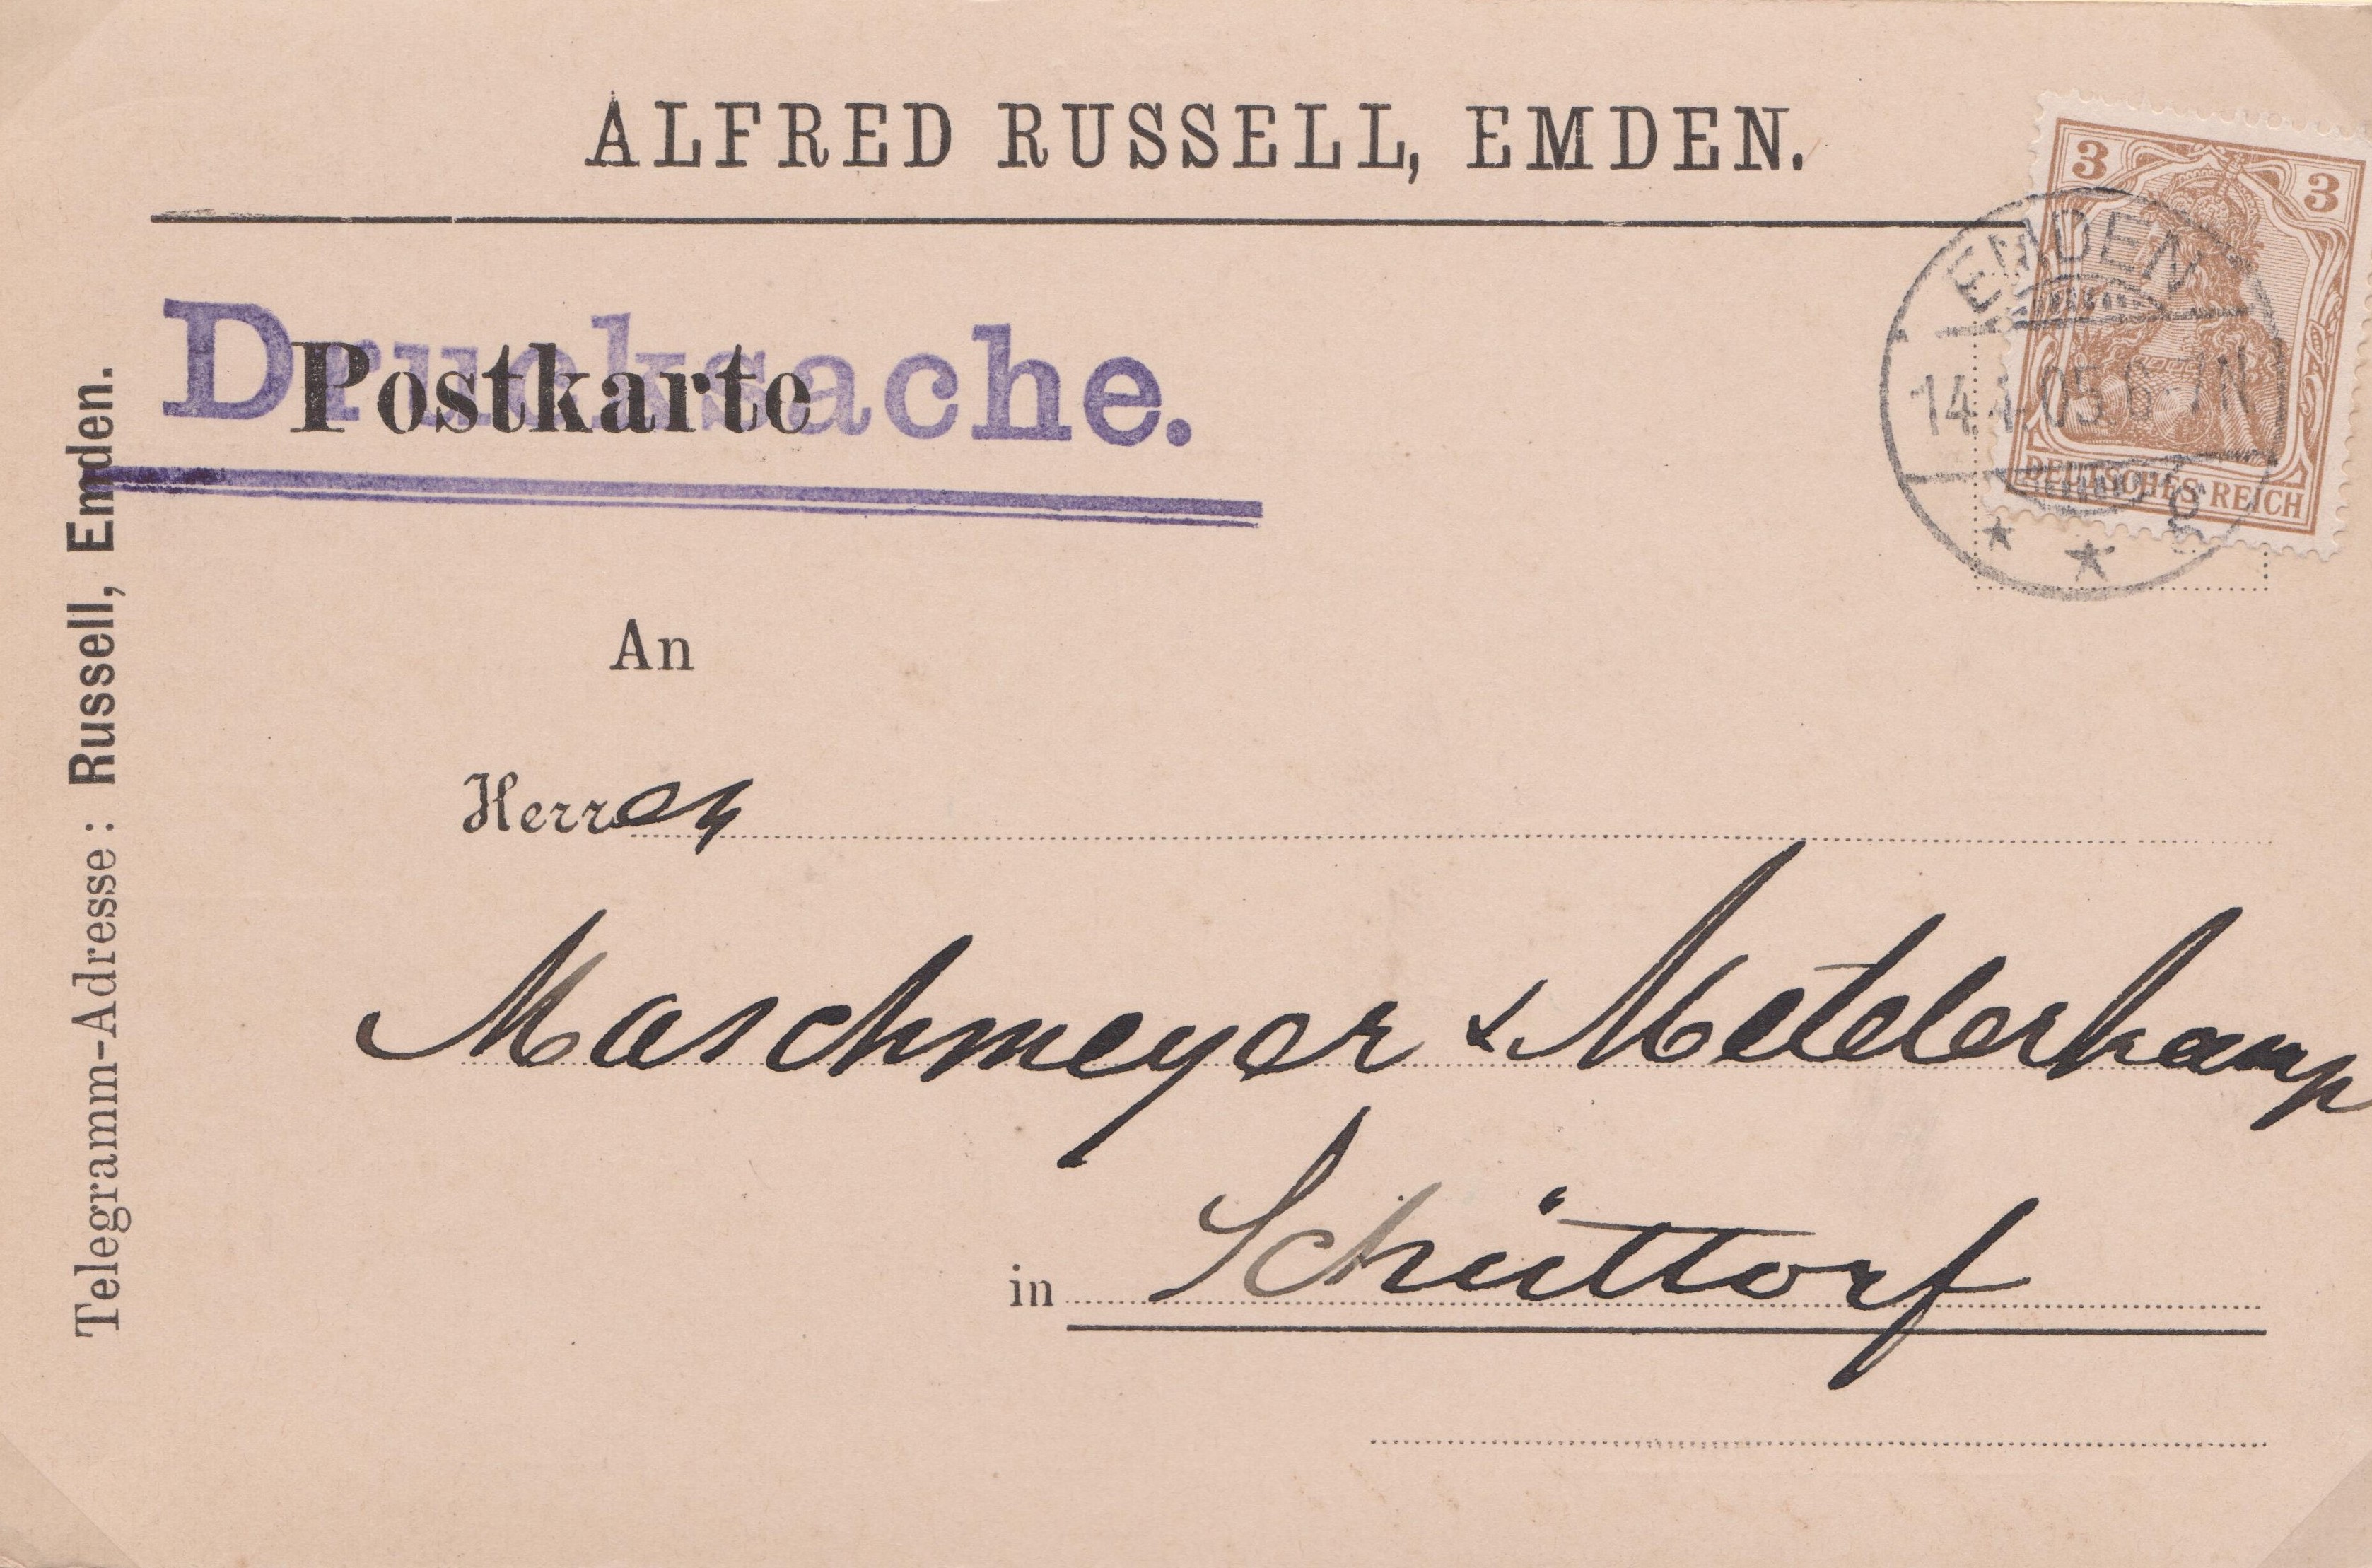 ALFRED RUSSELL, EMDEN.
3 3
EMDEN
14.4.05.6-7N
DEUTSCHES REICH
* * g
Drucksache.
Postkarte
Telegramm-Adresse: Russell, Emden.
An
Herren
Maschmeyer & Metelerkamp
in Schüttorf